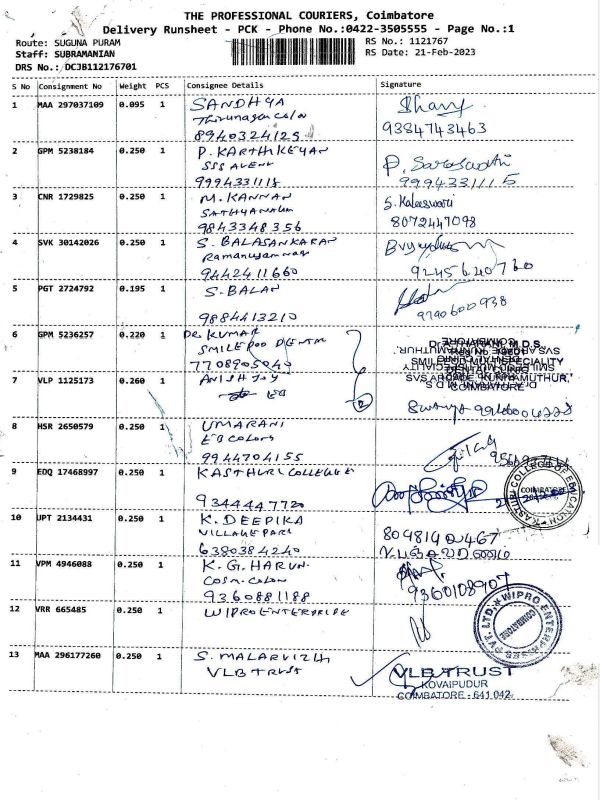 THE PROFESSIONAL COURIERS, Coimbatore
Delivery Runsheet - PCK - Phone No.:0422-3505555 - Page No.:1
Route: SUGUNA PURAM
RS No.: 1121767
Staff: SUBRAMANIAN
RS Date: 21-Feb-2023
DRS No.: DCJB112176701
S No Consignment No Weight PCS Consignee Details Signature
1 MAA 297037109 0.095 1 SANDHYA
8940324125 9384743463
2 GPM 5238184 0.250 1 P. KARTHIKEYAN P. Saraswathi
SSS AVENU
9994331118 9994331115
3 CNR 1729825 0.250 1 M. KANNAN S. Kaleeswari
SATHYANARM
9843348356 8072447098
4 SVK 30142026 0.250 1 S. BALASANKARAN
Ramanujamnag
9442411660 9245640760
5 PGT 2724792 0.195 1 S. BALAN
9884413210 9790600938
6 GPM 5236257 0.220 1 Dr. KUMAR
SMILEPOO DENTM
7708905040
7 VLP 1125173 0.260 1 ANISH JOY
EB
2
8 HSR 2650579 0.250 1 UMARANI
EB COLONY
9944704155
9 EDQ 17468997 0.250 1 KASTHURI COLLEGE
9344447720
KASTURI COLLEGE OF EDUCATION
COIMBATORE
10 UPT 2134431 0.250 1 K. DEEPIKA 8098190467
VILLAGE PARK
6380384240
11 VPM 4946088 0.250 1 K. G. HARUN
COSM. COLON
9360881188 9360108907
12 VRR 665485 0.250 WIPRO ENTERPRISE
WIPRO ENTERPRISES PVT. LTD.
COIMBATORE
13 MAA 296177260 0.250 1 S. MALARVIZLI
VLB TRUST
VLB TRUST
KOVAIPUDUR
COIMBATORE - 641 042